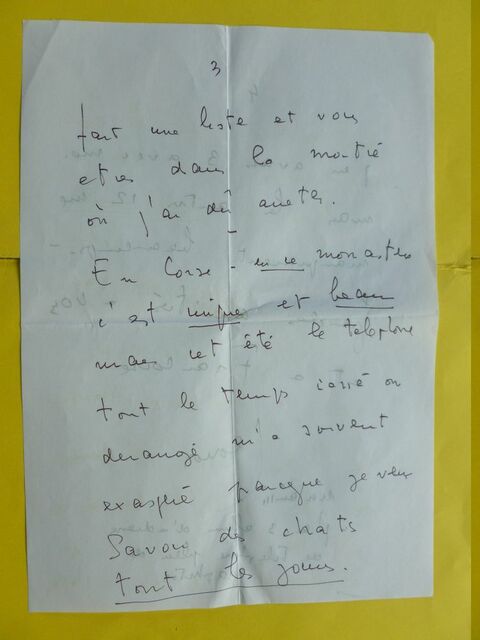 3
fait une liste et vous
etes dans la moitié
où j'ai dû
En Corse - en ce
c'est unique et beau
mais cet été le telephone
tout le temps cassé ou
derangé m'a souvent
exaspéré parceque je veux
savoir des chats
tout les jours.